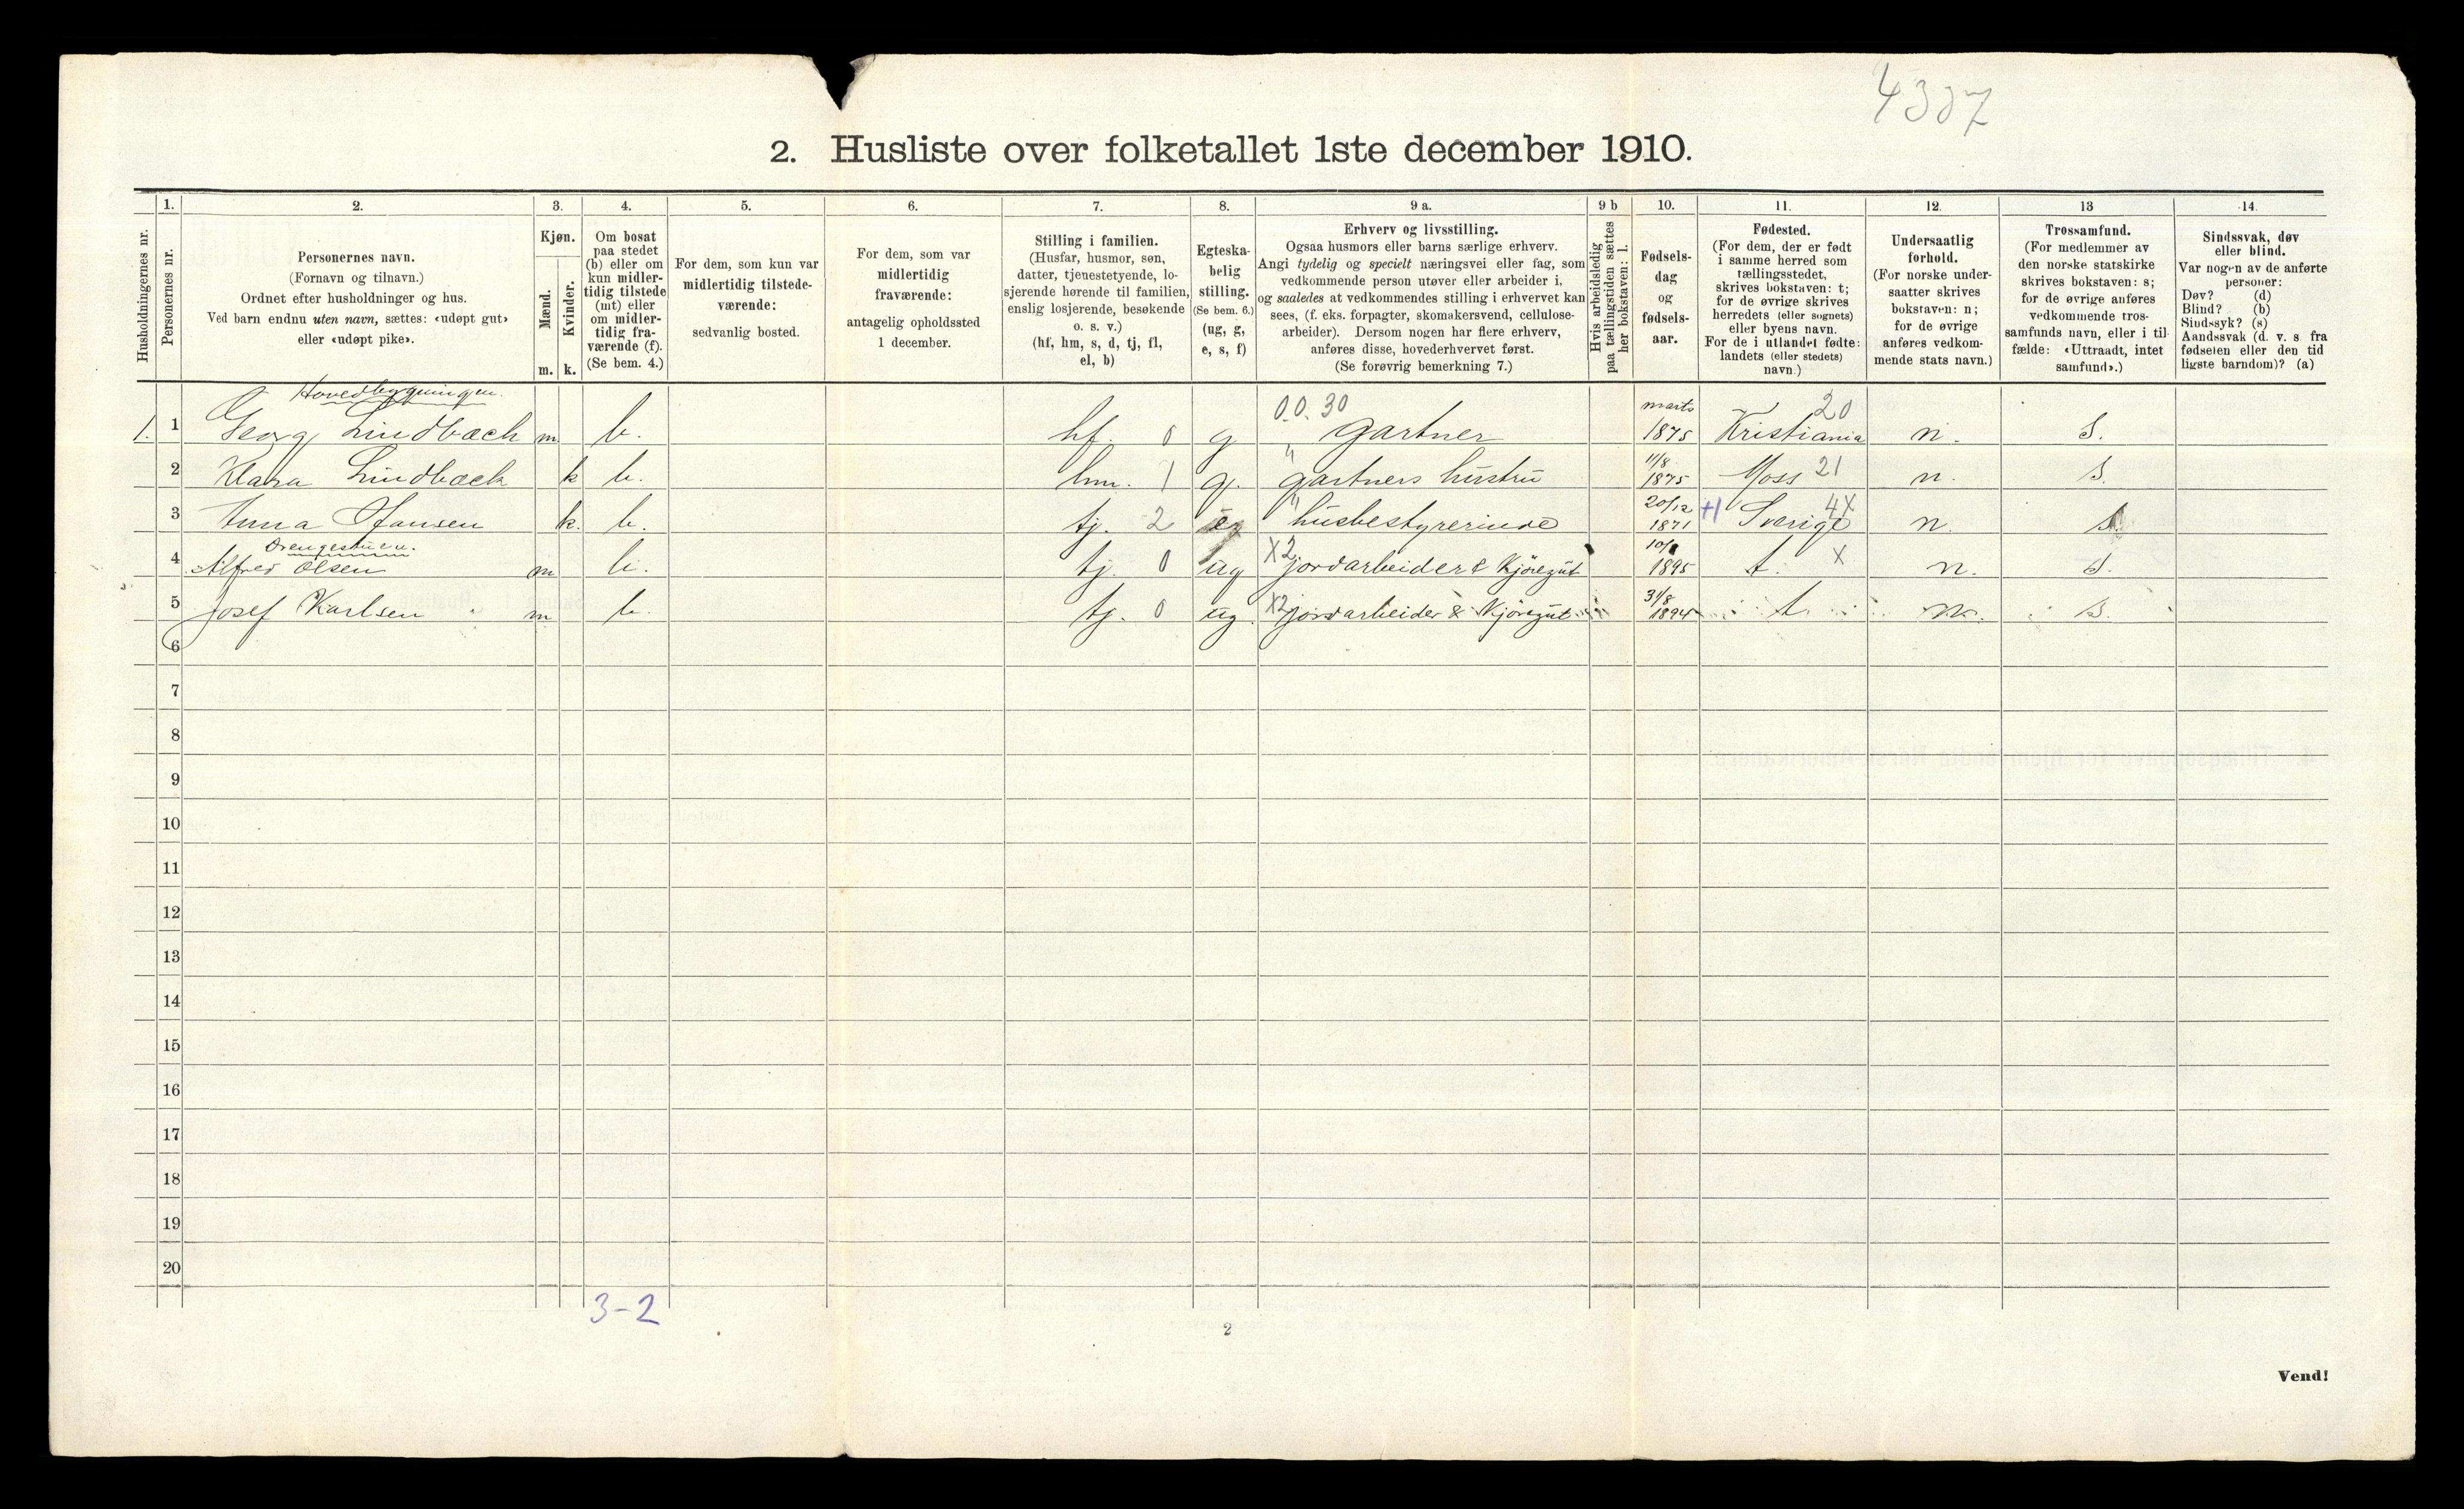 4307
2. Husliste over folketallet 1ste december 1910.
Husholdningernes nr.
1.
Personernes nr.
2.
Personernes navn.
(Fornavn og tilnavn.)
Ordnet efter husholdninger og hus.
Ved barn endnu uten navn, sættes: «udøpt gut»
eller «udøpt pike».
3.
Kjøn.
Mænd.
Kvinder.
m. k.
4.
Om bosat
paa stedet
(b) eller om
kun midler-
tidig tilstede
(mt) eller
om midler-
tidig fra-
værende (f).
(Se bem. 4.)
5.
For dem, som kun var
midlertidig tilstede-
værende:
sedvanlig bosted.
6.
For dem, som var
midlertidig
fraværende:
antagelig opholdssted
1 december.
7.
Stilling i familien.
(Husfar, husmor, søn,
datter, tjenestetyende, lo-
sjerende hørende til familien,
enslig losjerende, besøkende
o. s. v.)
(hf, hm, s, d, tj, fl,
el, b)
8.
Egteska-
belig
stilling.
(Se bem. 6.)
(ug, g,
e, s, f)
9 a.
Erhverv og livsstilling.
Ogsaa husmors eller barns særlige erhverv.
Angi tydelig og specielt næringsvei eller fag, som
vedkommende person utøver eller arbeider i,
og saaledes at vedkommendes stilling i erhvervet kan
sees, (f. eks. forpagter, skomakersvend, cellulose-
arbeider). Dersom nogen har flere erhverv,
anføres disse, hovederhvervet først.
(Se forøvrig bemerkning 7.)
9 b
Hvis arbeidsledig
paa tællingstiden sættes
her bokstaven: l.
10.
Fødsels-
dag
og
fødsels-
aar.
11.
Fødested.
(For dem, der er født
i samme herred som
tællingsstedet,
skrives bokstaven: t;
for de øvrige skrives
herredets (eller sognets)
eller byens navn.
For de i utlandet fødte:
landets (eller stedets)
navn.)
12.
Undersaatlig
forhold.
(For norske under-
saatter skrives
bokstaven: n;
for de øvrige
anføres vedkom-
mende stats navn.)
13
Trossamfund.
(For medlemmer av
den norske statskirke
skrives bokstaven: s;
for de øvrige anføres
vedkommende tros-
samfunds navn, eller i til
fælde: «Uttraadt, intet
samfund».)
14.
Sindssvak, døv
eller blind.
Var nogen av de anførte
personer:
Døv? (d)
Blind? (b)
Sindssyk? (s)
Aandssvak (d. v. s fra
fødselen eller den tid
ligste barndom)? (a)
Hovedbygningen.
0.0.30 marts 20
1. 1 Georg Lindbæck m b. hf. 0 g gartner 1875 Kristiania n. s.
2 Klara Lindbæck k b. hm. 1 g. " gartners hustru 11/8 1875 Moss 21 n. s.
3 Anna Hansen k. b. tj. 2 " husbestyrerinde 20/12 1871 Sverige 4X n. s.
Drengestuen.
4 Alfred Olsen m b. tj. 0 ug X2 jordarbeider & Kjøregut 1895 t. X n. s.
5 Josef Karlsen m b. tj. 0 ug. X2 jordarbeider & Kjøregut 31/8 1894 t n. s.
6
7
8
9
10
11
12
13
14
15
16
17
18
19
20
3-2
2
Vend!